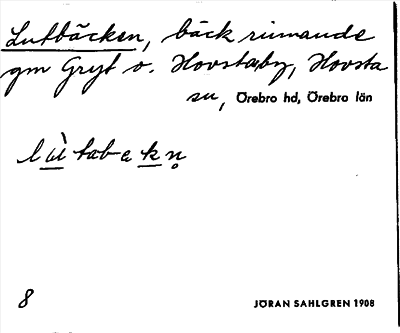 Lutbäcken, bäck rinnande
gm Gryt o. Hovstaby, Hovsta
sn, Örebro hd, Örebro län
lùtabekn̥
8
JÖRAN SAHLGREN 1908